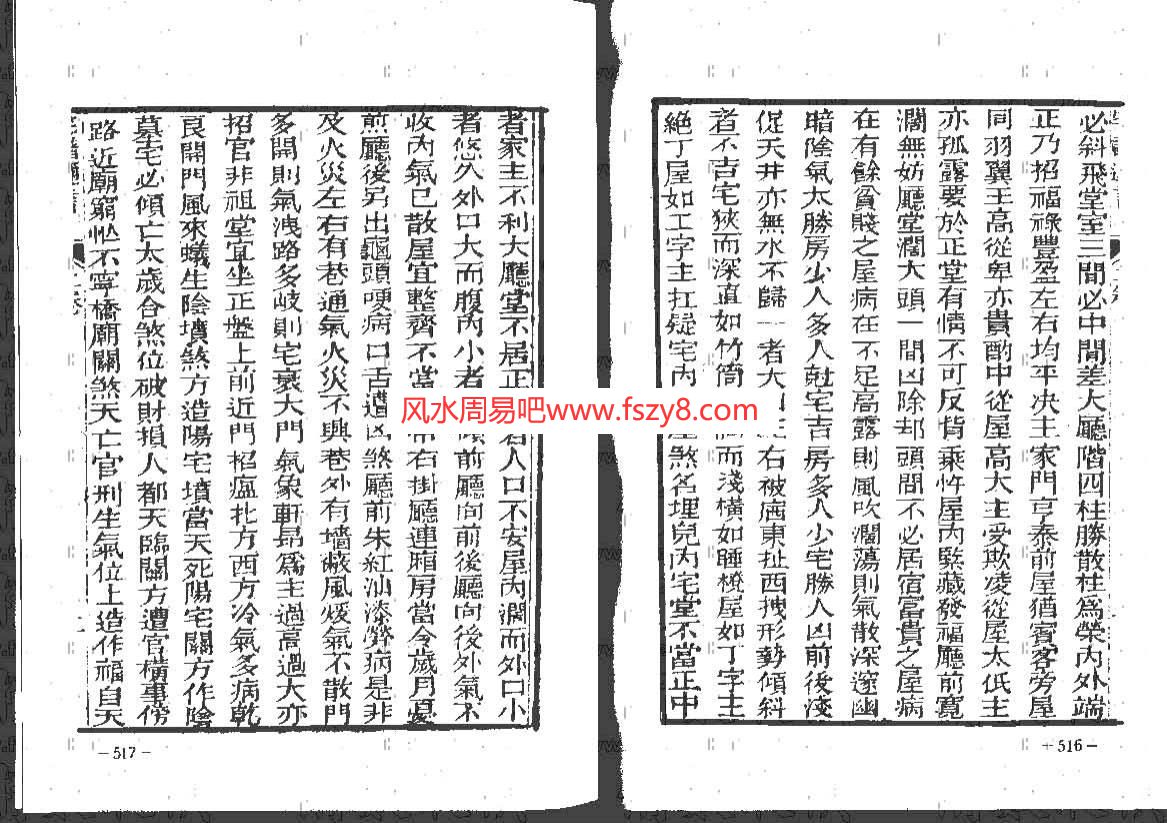 必斜飛堂室三間必中間差大廳階四柱勝散柱為榮內外端
正乃招福祿豐盈左右均平决主家門亨泰前屋猶賓客旁屋
同羽翼主高從卑亦貴酌中從屋高大主受欺凌從屋太低主
亦孤露要於正堂有情不可反背乘忤屋內緊藏發福廳前寬
濶無妨廳堂濶大頭一間凶除却頭間不必居宿富貴之屋病
在有餘貧賤之屋病在不足高露則風吹濶蕩則氣散深邃幽
暗陰氣太勝房少人多人尅宅吉房多人少宅勝人凶前後淺
促天井亦無水不歸一者大右被廣東扯西拽形勢傾斜
者不吉宅狹而深直如竹筒而淺橫如睡櫈屋如丁字主
絕丁屋如工字主扛疑宅內屋煞名埋兒內宅堂不當正中
者家主不利大廳堂不居正者人口不安屋內濶而外口小
者悠久外口大而腹內小者傾前廳向前後廳向後外氣不
收內氣已散屋宜整齊不當右掛廳連廂房當令歲月憂
煎廳後另出龜頭哽病口舌遭凶煞廳前朱紅油漆癆病是非
及火災左右有巷通氣火災不興巷外有墻蔽風煖氣不散門
多開則氣洩路多岐則宅衰大門氣象軒昂為主過高過大亦
招官非祖堂宜坐正盤上前近門招瘟扯方西方冷氣多病乾
艮開門風來蟻生陰墳煞方造陽宅墳當天死陽宅關方作陰
墓宅必傾亡太歲合煞位破財損人都天臨關方遭官橫事傍
路近廟窮忙不寧橋廟關煞天亡官刑生氣位上造作福自天
风水周易吧www.fszy8.com
-517-
-516-